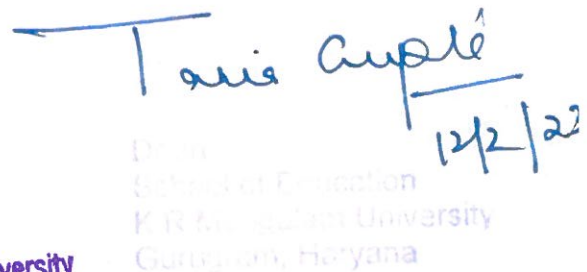 Tania Gupta
12/2/22
Dean
School of Education
K R Mangalam University
Gurugram, Haryana
versity